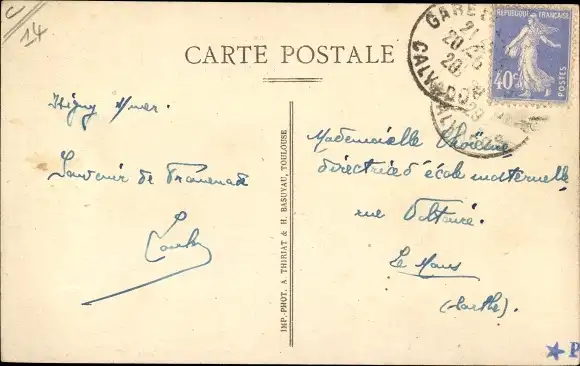 14
CARTE POSTALE
GARE
CALVADOS
REPUBLIQUE FRANÇAISE
40c
POSTES
Isigny s/mer.
Souvenir de Promenade
IMP.-PHOT. A THIRIAT & H. BASUYAU, TOULOUSE
Mademoiselle
directrice d'école maternelle
rue Voltaire.
Le Mans
(Sarthe).
P